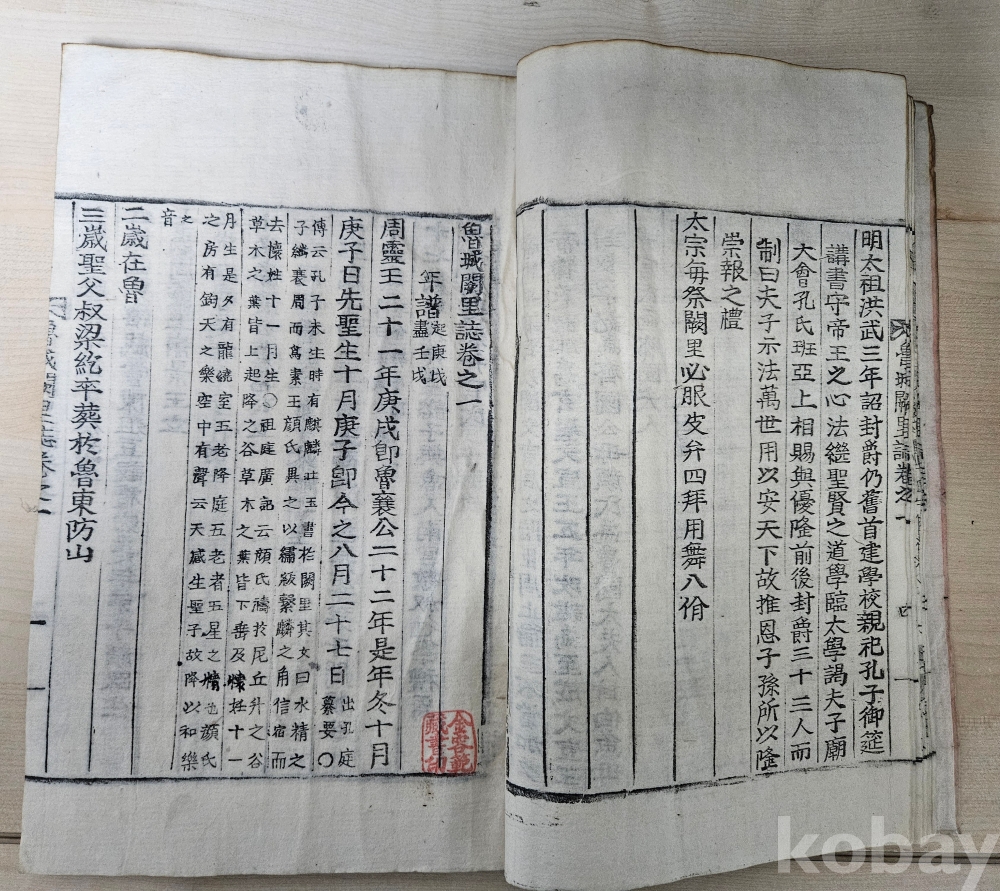 明太祖洪武三年詔封爵仍舊首建學校親祀孔子御筵
講書守帝王之心法繼聖賢之道學臨太學謁夫子廟
大會孔氏班亞上相賜與優隆前後封爵三十三人而
制曰夫子示法萬世用以安天下故推恩子孫所以隆
崇報之禮
太宗每祭闕里必服皮弁四拜用舞八佾
魯城闕里誌卷之一
魯城闕里誌卷之一
年譜 起庚戌
盡壬戌
周靈王二十一年庚戌卽魯襄公二十二年是年冬十月
庚子日先聖生十月庚子卽今之八月二十七日 出孔庭
纂要〇
傳云孔子未生時有麒麟吐玉書於闕里其文曰水精之
子繼衰周而爲素王顔氏異之以繡紱繫麟之角信宿而
去懷姙十一月生〇祖庭廣記云顔氏禱於尼丘升之谷
草木之葉皆上起降之谷草木之葉皆下垂及懷姙十一
月生是夕有龍繞室五老降庭五老者五星之精也顔氏
之房有鈞天之樂空中有聲云天感生聖子故降以和樂
之
音
二歲在魯
三歲聖父叔梁紇卒葬於魯東防山
魯城闕里誌卷之一
一
藏書印
kobay